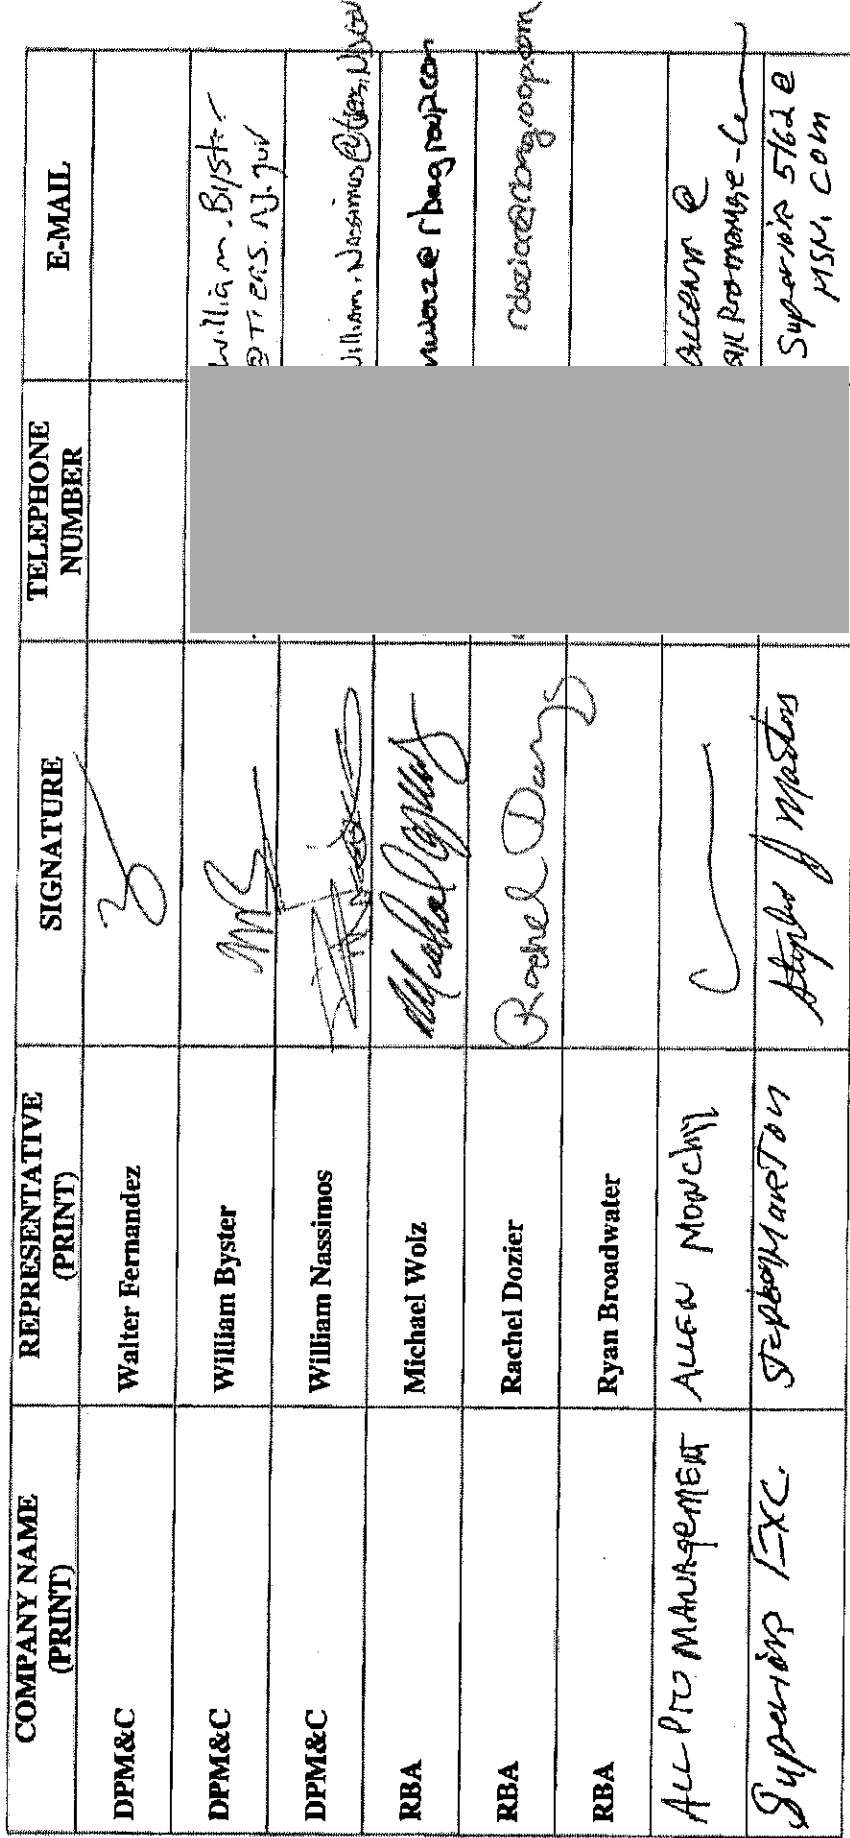 COMPANY NAME
(PRINT)
REPRESENTATIVE
(PRINT)
SIGNATURE
TELEPHONE
NUMBER
E-MAIL
DPM&C
Walter Fernandez
DPM&C
William Byster
William.Byster
@Treas.NJ.gov
DPM&C
William Nassimos
William.Nassimos@treas.NJ.gov
RBA
Michael Wolz
mwolz@rbagroup.com
RBA
Rachel Dozier
Rachel
rdozier@rbagroup.com
RBA
Ryan Broadwater
ALL PRO MANAGEMENT
ALLEN
Superior EXC.
Stephen Marton
Stephen J Marton
Superior 5162 @
MSN.COM